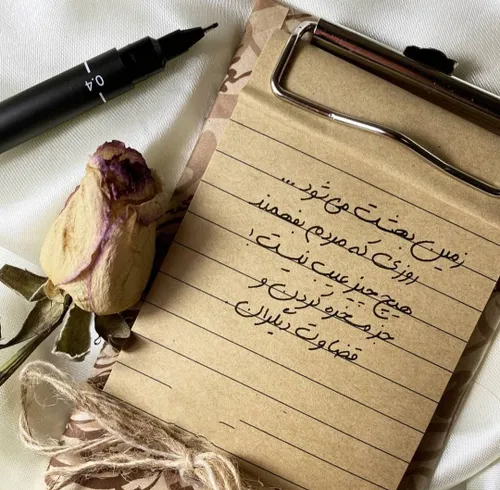 0.4
زمین بهشت می شود...
روزی که مردم بفهمند
هیچ چیز عیب نیست!
جز مسخره کردن و
قضاوت دیگران.